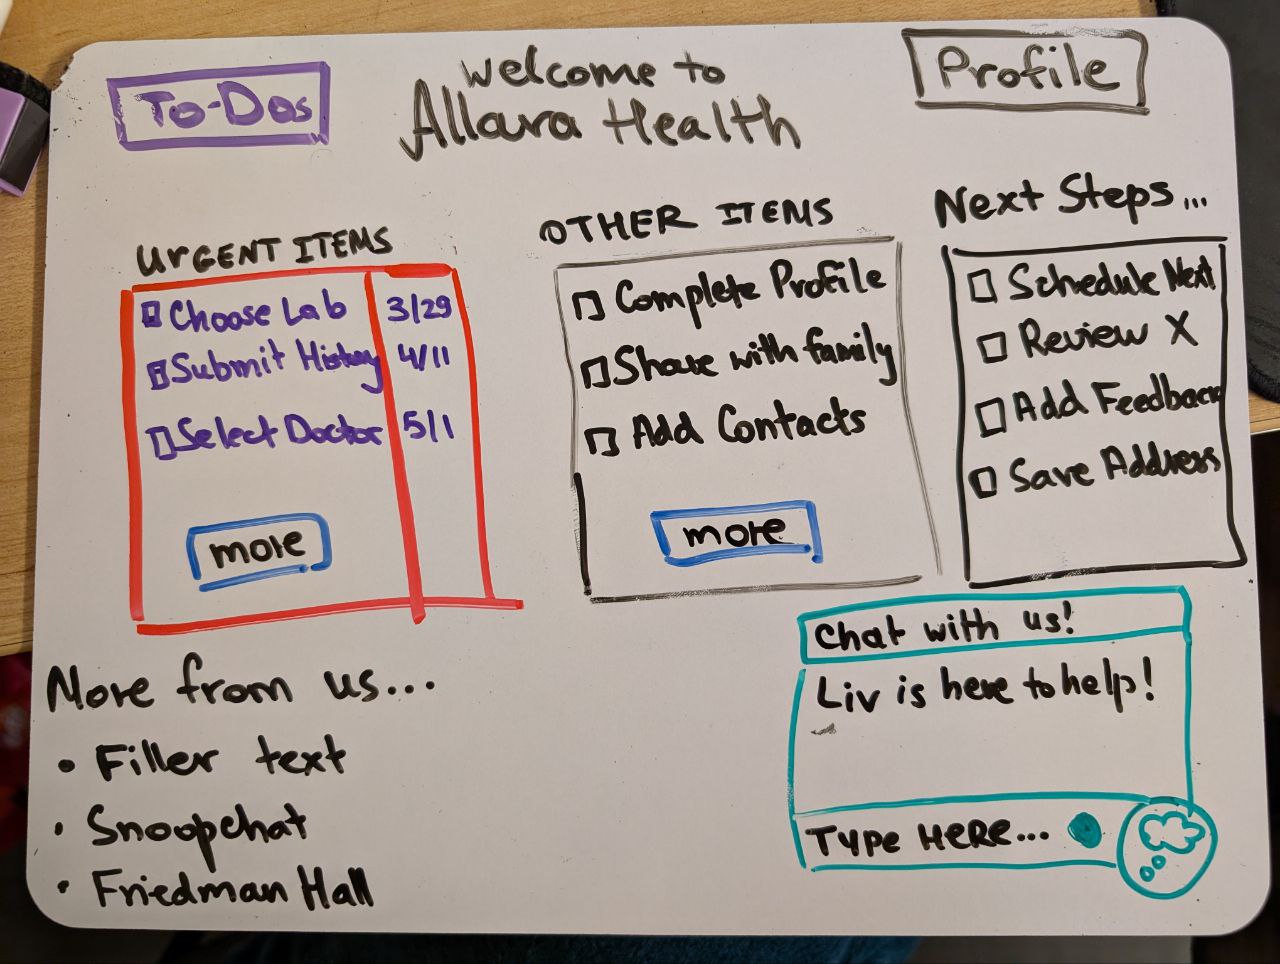 To-Dos
Welcome to
Allara Health
Profile
URGENT ITEMS
Choose Lab 3/29
Submit History 4/11
Select Doctor 5/1
more
OTHER ITEMS
Complete Profile
Share with family
Add Contacts
more
Next Steps...
Schedule Next
Review X
Add Feedback
Save Address
More from us...
• Filler text
• Snoopchat
• Friedman Hall
Chat with us!
Liv is here to help!
Type HERE...